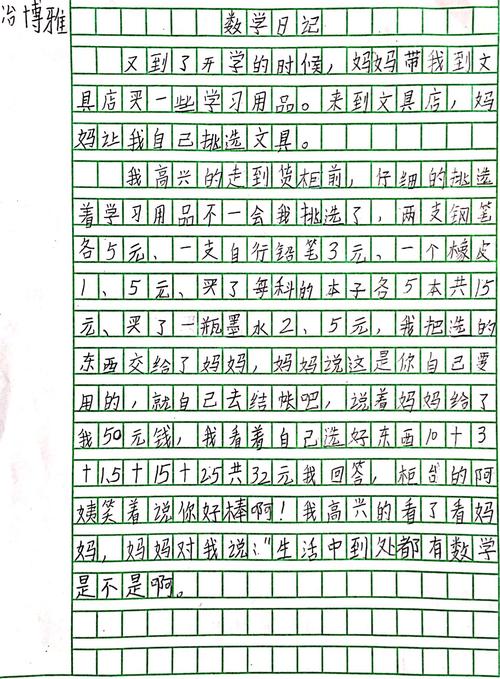 冶博雅
数学日记
又到了开学的时候，妈妈带我到文
具店买一些学习用品。来到文具店，妈
妈让我自己挑选文具。
我高兴的走到货柜前，仔细的挑选
着学习用品不一会我挑选了，两支钢笔
各5元、一支自行铅笔3元、一个橡皮
1、5元、买了每科的本子各5本共15
元、买了一瓶墨水2、5元，我把选的
东西交给了妈妈，妈妈说这是你自己要
用的，就自己去结帐吧，说着妈妈给了
我50元钱，我看着自己选好东西10+3
+1.5+15+2.5共32元我回答，柜台的阿
姨笑着说你好棒啊！我高兴的看了看妈
妈，妈妈对我说："生活中到处都有数学
是不是啊。